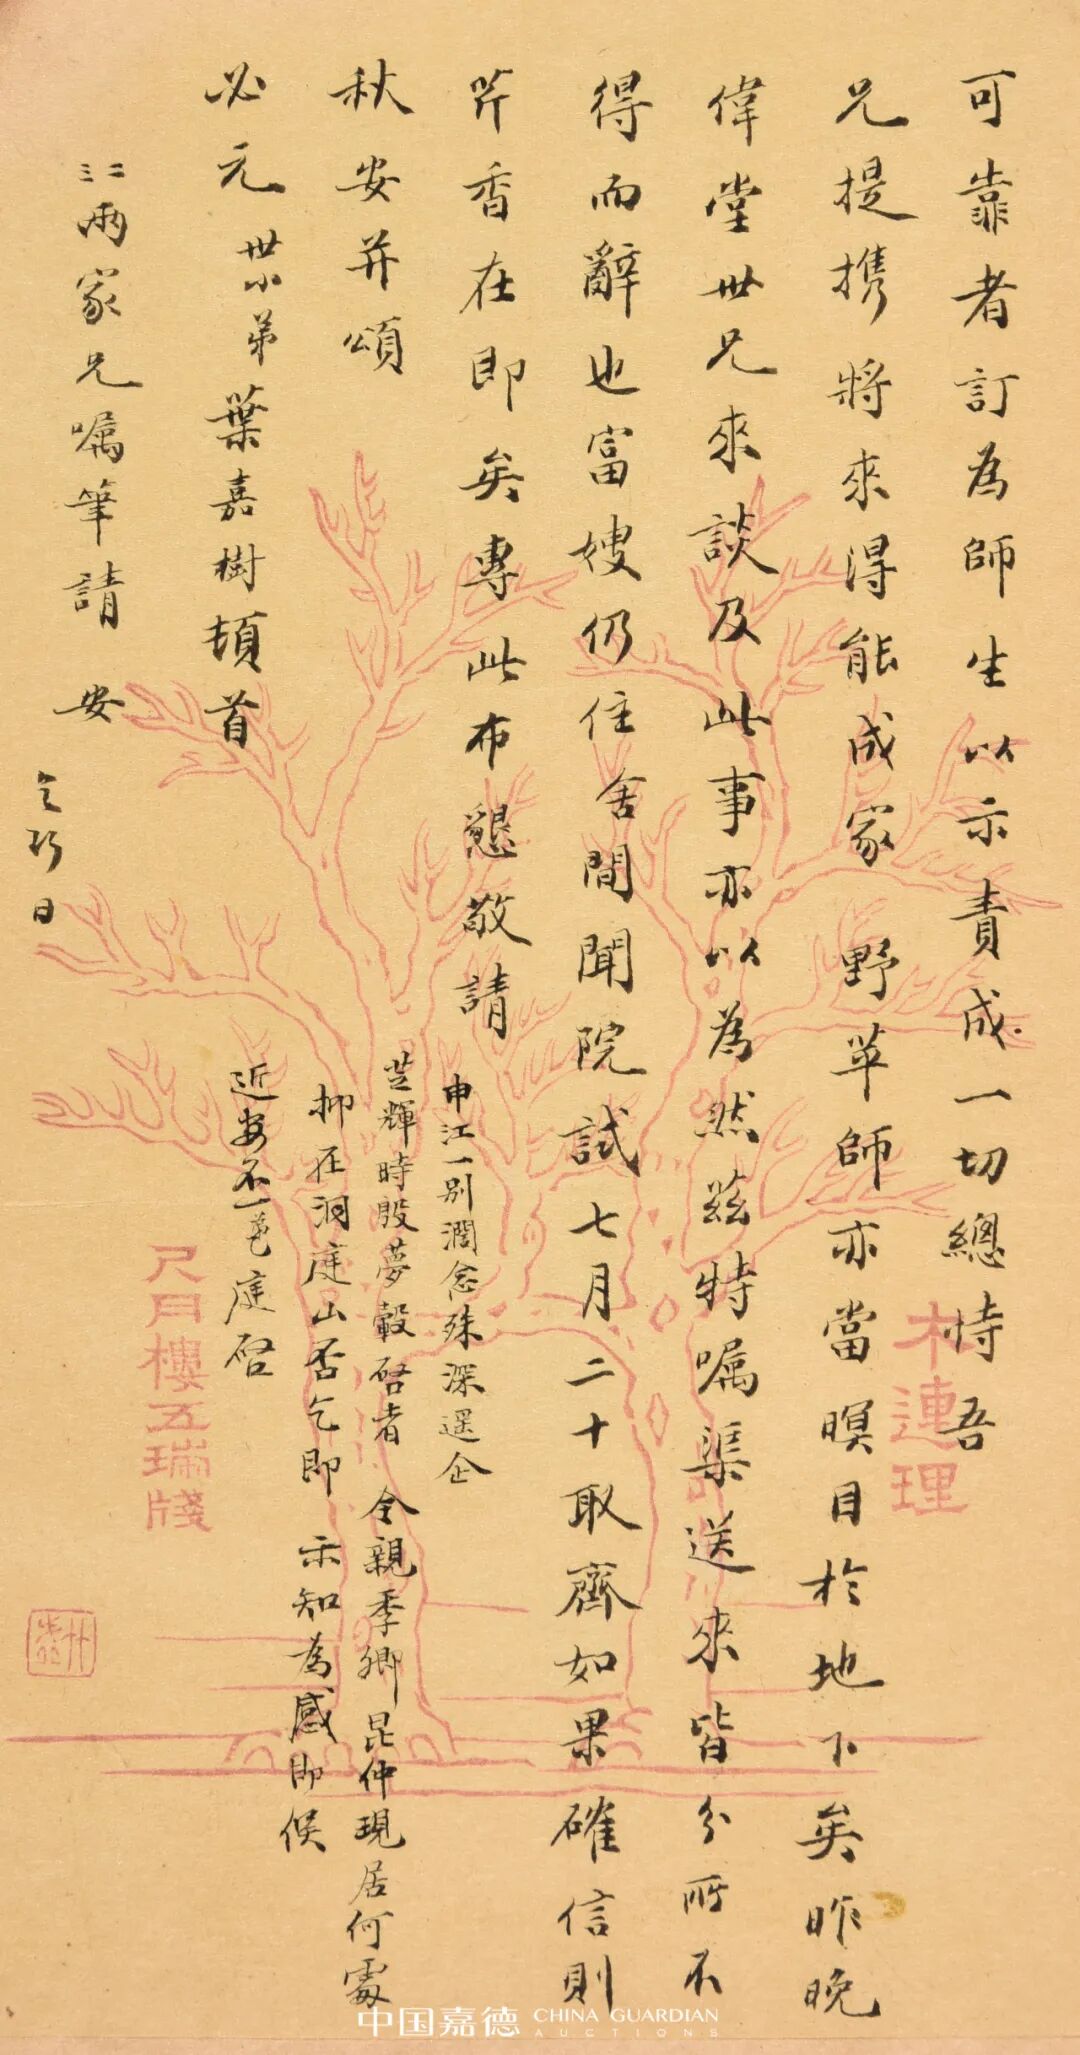 可靠者訂為師生以示責成一切總恃吾
兄提携將來得能成家野苹師亦當瞑目於地下矣昨晚
偉堂世兄來談及此事亦以為然茲特嘱渠送來皆分所不
得而辭也富嫂仍住舍間聞院試七月二十取齊如果確信則
芹香在即矣專此布懇敬請
秋安并頌
必元 世小弟葉嘉樹頓首
三二兩家兄嘱筆請 安 乞巧日
申江一別濶念殊深遥企
芝輝時殷夢轂啓者 令親季卿昆仲現居何處
抑在洞庭山否乞即 示知為感即候
近安不一 邕庭啓
木連理
尺月樓五瑞牋
中国嘉德 CHINA GUARDIAN AUCTIONS